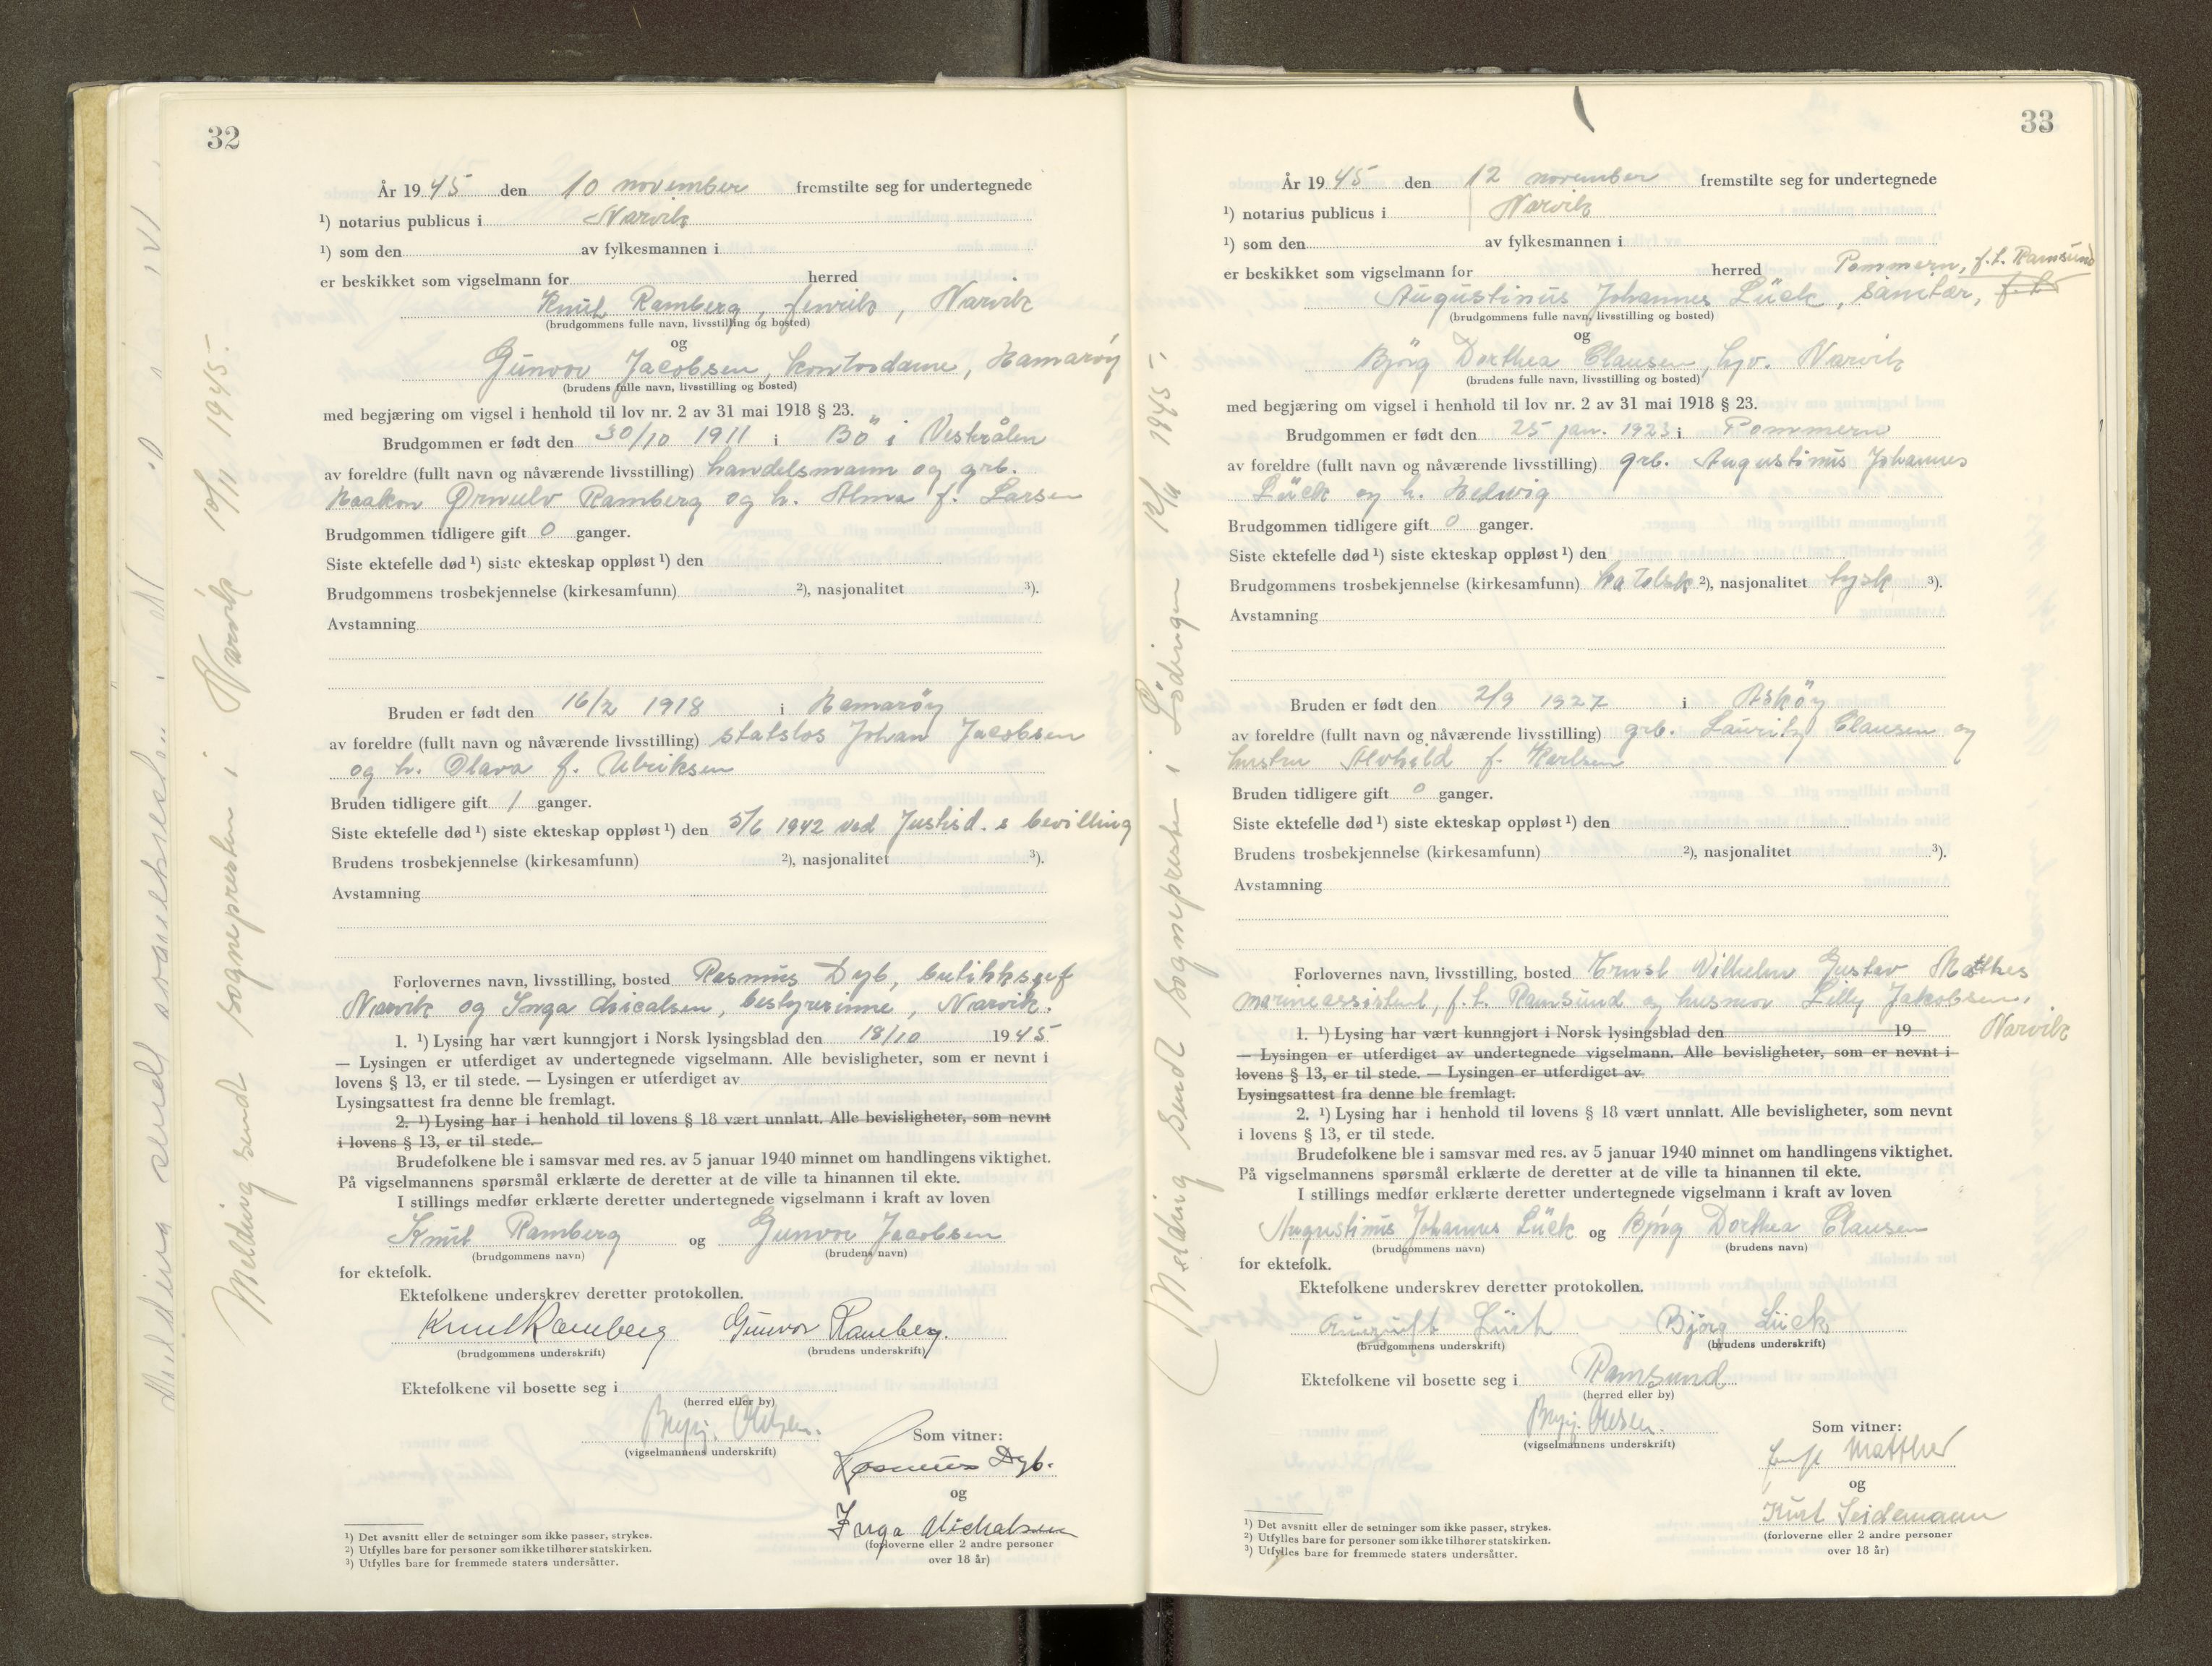 32
År 1945 den 10 november fremstilte seg for undertegnede
¹) notarius publicus i Narvik
¹) som den av fylkesmannen i
er beskikket som vigselmann for herred
Knut Ramberg, fenrik, Narvik
(brudgommens fulle navn, livsstilling og bosted)
og
Gunvor Jacobsen, kontordame, Hamarøy
(brudens fulle navn, livsstilling og bosted)
med begjæring om vigsel i henhold til lov nr. 2 av 31 mai 1918 § 23.
Brudgommen er født den 30/10 1911 i Bö i Vestrålen
av foreldre (fullt navn og nåværende livsstilling) handelsmann og grb.
Haakon Ørnulv Ramberg og h. Alma f. Larsen
Brudgommen tidligere gift 0 ganger.
Siste ektefelle død ¹) siste ekteskap oppløst ¹) den
Brudgommens trosbekjennelse (kirkesamfunn) ²), nasjonalitet ³).
Avstamning
Bruden er født den 16/2 1918 i Hamaröy
av foreldre (fullt navn og nåværende livsstilling) statslos Johan Jacobsen
og h. Olava f. Ulriksen
Bruden tidligere gift 1 ganger.
Siste ektefelle død ¹) siste ekteskap oppløst ¹) den 5/6 1942 ved Justisd. s bevilling
Brudens trosbekjennelse (kirkesamfunn) ²), nasjonalitet ³).
Avstamning
Forlovernes navn, livsstilling, bosted Rasmus Dyb, butikksjef
Narvik og Inga Micalsen, bestyrerinne, Narvik.
1. ¹) Lysing har vært kunngjort i Norsk lysingsblad den 18/10 1945
— Lysingen er utferdiget av undertegnede vigselmann. Alle bevisligheter, som er nevnt i
lovens § 13, er til stede. — Lysingen er utferdiget av
Lysingsattest fra denne ble fremlagt.
2. ¹) Lysing har i henhold til lovens § 18 vært unnlatt. Alle bevisligheter, som nevnt
i lovens § 13, er til stede.
Brudefolkene ble i samsvar med res. av 5 januar 1940 minnet om handlingens viktighet.
På vigselmannens spørsmål erklærte de deretter at de ville ta hinannen til ekte.
I stillings medfør erklærte deretter undertegnede vigselmann i kraft av loven
Knut Ramberg og Gunvor Jacobsen
(brudgommens navn) (brudens navn)
for ektefolk.
Ektefolkene underskrev deretter protokollen.
Knut Ramberg Gunvor Ramberg.
(brudgommens underskrift) (brudens underskrift)
Ektefolkene vil bosette seg i
(herred eller by)
(vigselmannens underskrift)
Som vitner:
Rasmus Dyb.
og
Inga Michalsen
(forloverne eller 2 andre personer
over 18 år)
¹) Det avsnitt eller de setninger som ikke passer, strykes.
²) Utfylles bare for personer som ikke tilhører statskirken.
³) Utfylles bare for fremmede staters undersåtter.
Melding sendt sogneprесten i Narvik 10/11 1945.
33
År 1945 den 12 november fremstilte seg for undertegnede
¹) notarius publicus i Narvik
¹) som den av fylkesmannen i
er beskikket som vigselmann for herred Pommern, f.t. Ramsund
Augustinus Johannes Lück, sanitær, f.t.
(brudgommens fulle navn, livsstilling og bosted)
og
Bjørg Dorthea Clausen, hjv. Narvik
(brudens fulle navn, livsstilling og bosted)
med begjæring om vigsel i henhold til lov nr. 2 av 31 mai 1918 § 23.
Brudgommen er født den 25 jan. 1923 i Pommern
av foreldre (fullt navn og nåværende livsstilling) grb. Augustinus Johannes
Lück og h. Hedwig
Brudgommen tidligere gift 0 ganger.
Siste ektefelle død ¹) siste ekteskap oppløst ¹) den
Brudgommens trosbekjennelse (kirkesamfunn) katolsk ²), nasjonalitet tysk ³).
Avstamning
Bruden er født den 2/9 1927 i Asköy
av foreldre (fullt navn og nåværende livsstilling) grb. Lauritz Clausen og
hustru Alvhild f. Karlsen
Bruden tidligere gift 0 ganger.
Siste ektefelle død ¹) siste ekteskap oppløst ¹) den
Brudens trosbekjennelse (kirkesamfunn) ²), nasjonalitet ³).
Avstamning
Forlovernes navn, livsstilling, bosted Ernst Wilhelm Gustav Matthes
marineassistent, f.t. Ramsund og husmor Lilly Jakobsen,
Narvik
1. ¹) Lysing har vært kunngjort i Norsk lysingsblad den 19
— Lysingen er utferdiget av undertegnede vigselmann. Alle bevisligheter, som er nevnt i
lovens § 13, er til stede. — Lysingen er utferdiget av
Lysingsattest fra denne ble fremlagt.
2. ¹) Lysing har i henhold til lovens § 18 vært unnlatt. Alle bevisligheter, som nevnt
i lovens § 13, er til stede.
Brudefolkene ble i samsvar med res. av 5 januar 1940 minnet om handlingens viktighet.
På vigselmannens spørsmål erklærte de deretter at de ville ta hinannen til ekte.
I stillings medfør erklærte deretter undertegnede vigselmann i kraft av loven
Augustinus Johannes Lück og Bjørg Dorthea Clausen
(brudgommens navn) (brudens navn)
for ektefolk.
Ektefolkene underskrev deretter protokollen.
August Lück Bjørg Lück
(brudgommens underskrift) (brudens underskrift)
Ektefolkene vil bosette seg i Ramsund
(herred eller by)
(vigselmannens underskrift)
Som vitner:
Ernst Matthes
og
Kurt Seidemann
(forloverne eller 2 andre personer
over 18 år)
¹) Det avsnitt eller de setninger som ikke passer, strykes.
²) Utfylles bare for personer som ikke tilhører statskirken.
³) Utfylles bare for fremmede staters undersåtter.
Melding sendt sognepresten i Lödingen 12/11 1945